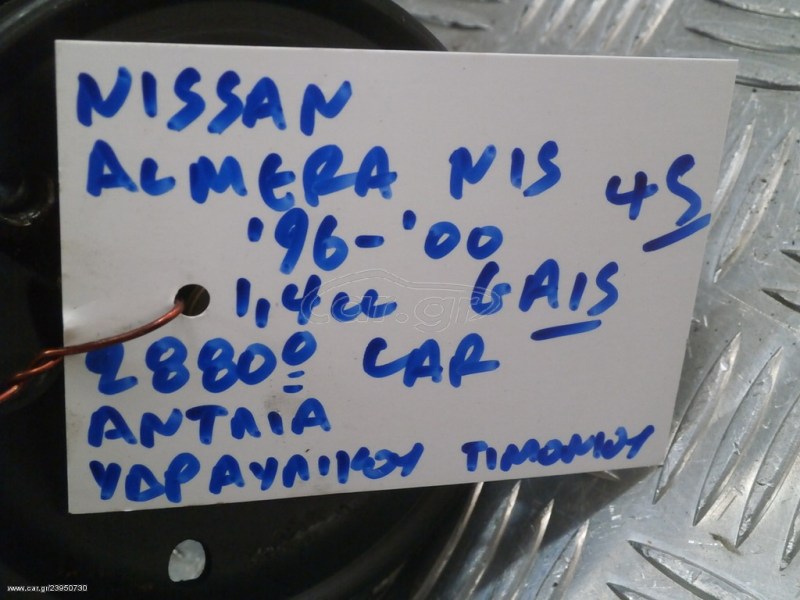 NISSAN
ALMERA NIS 4S
'96-'00
1,4cc GA15
28800 CAR
ΑΝΤΛΙΑ
ΥΔΡΑΥΛΙΚΟΥ ΤΙΜΟΝΙΟΥ
car.gr
www.car.gr/23950730